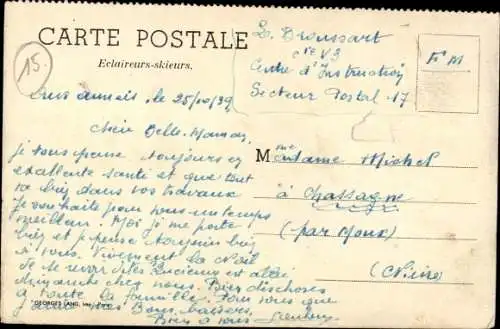 CARTE POSTALE
Eclaireurs-skieurs.
15
L. Broussart
N° V3
Centre d'Instruction
Secteur Postal 17
F M
Aux armées, le 25/10/39
Chère Belle-Maman,
je vous pense toujours en
exellente santé et que tout
va bien dans vos travaux
je souhaite pour vous un temps
meilleur. Moi je me porte
bien et je pense toujours bien
à vous. Vivement la Noël
de se revoir, Lucienne est allée
dimanche chez nous. Bien des choses
à toute la famille. Vous nous que
Bons baisers,
Bien à vous
Mme
Madame Michel
à Chassagne
(par Moux)
(Nièvre)
GEORGES LANG, Imp., Paris